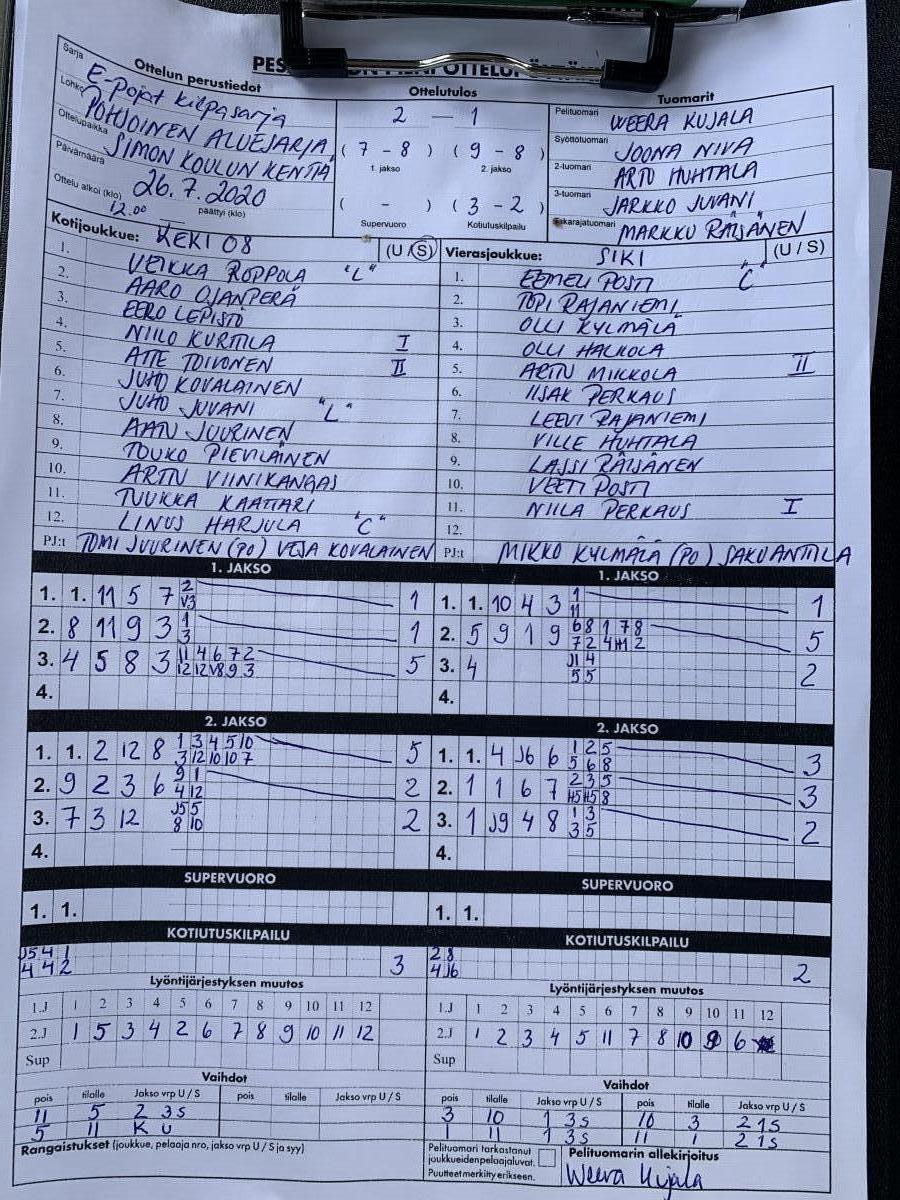 Ottelun perustiedot
Sarja E-Pojat kilpasarja
Lohko POHJOINEN ALUESARJA
Ottelupaikka SIMON KOULUN KENTTÄ
Päivämäärä 26.7.2020
Ottelu alkoi (klo) 12.00 päättyi (klo)
Ottelutulos
2 — 1
( 7 - 8 ) ( 9 - 8 )
1. jakso 2. jakso
( - ) ( 3 - 2 )
Supervuoro Kotiutuskilpailu
Tuomarit
Pelituomari WEERA KUJALA
Syöttötuomari JOONA NIVA
2-tuomari ARTO HUHTALA
3-tuomari JARKKO JUVANI
Takarajatuomari MARKKU RÄISÄNEN
Kotijoukkue: KEKI 08 (U / S)
1. VEIKKA ROPPOLA "L"
2. AARO OJANPERÄ
3. EERO LEPISTÖ
4. NIILO KURTTILA I
5. ATTE TOIVONEN II
6. JUHO KOVALAINEN
7. JUHO JUVANI "L"
8. AATU JUURINEN
9. TOUKO PIEVILÄINEN
10. ARTTU VIINIKANGAS
11. TUUKKA KAATTARI
12. LINUS HARJULA "C"
PJ:t TOMI JUURINEN (PO) VESA KOVALAINEN
Vierasjoukkue: SIKI (U / S)
1. EEMELI POSTI "C"
2. TOPI RAJANIEMI
3. OLLI KYLMÄLÄ
4. OLLI HALKOLA
5. ARTTU MIKKOLA II
6. IISAK PERKAUS
7. LEEVI RAJANIEMI
8. VILLE HUHTALA
9. LASSI RÄISÄNEN
10. VEETI POSTI
11. NIILA PERKAUS I
12.
PJ:t MIKKO KYLMÄLÄ (PO) SAKU ANTTILA
1. JAKSO
1. 1. 11 5 7 2 1
V3
2. 8 11 9 3 1 1
3
3. 4 5 8 3 11 4 6 7 2 5
12 12 V8 9 3
4.
1. JAKSO
1. 1. 10 4 3 1 1
11
2. 5 9 1 9 6 8 1 7 8 5
7 2 4 H1 2
3. 4 J1 4 2
5 5
4.
2. JAKSO
1. 1. 2 12 8 1 3 4 5 10 5
3 12 10 10 7
2. 9 2 3 6 9 1 2
4 12
3. 7 3 12 J5 5 2
8 10
4.
2. JAKSO
1. 1. 4 J6 6 1 2 5 3
5 6 8
2. 1 1 6 7 2 3 5 3
H5 H5 8
3. 1 J9 4 8 1 3 2
3 5
4.
SUPERVUORO
1. 1.
SUPERVUORO
1. 1.
KOTIUTUSKILPAILU
J5 4 1 3
4 4 2
KOTIUTUSKILPAILU
2 8 2
4 J6
Lyöntijärjestyksen muutos
1.J 1 2 3 4 5 6 7 8 9 10 11 12
2.J 1 5 3 4 2 6 7 8 9 10 11 12
Sup
Lyöntijärjestyksen muutos
1.J 1 2 3 4 5 6 7 8 9 10 11 12
2.J 1 2 3 4 5 11 7 8 10 9 6
Sup
Vaihdot
pois tilalle Jakso vrp U / S pois tilalle Jakso vrp U / S
11 5 2 3S
5 11 K U
Vaihdot
pois tilalle Jakso vrp U / S pois tilalle Jakso vrp U / S
3 10 1 3S 10 3 2 1S
1 11 1 3S 11 1 2 1S
Rangaistukset (joukkue, pelaaja nro, jakso vrp U / S ja syy)
Pelituomari tarkastanut
joukkueiden pelaajaluvat.
Puutteet merkitty erikseen.
Pelituomarin allekirjoitus
Weera Kujala